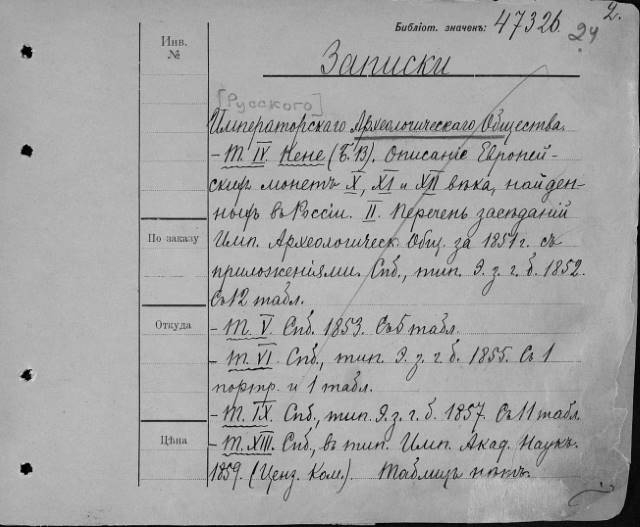 2.
Библіот. значенъ: 47326
24
Инв.
№
Записки
[Русского]
Императорскаго Археологическаго Общества.
- Т. IV. Кене (Б. В). Описаніе Европей-
скихъ монетъ X, XI и XII вѣка, найден-
ныхъ въ Россіи. II. Перечень засѣданій
По заказу
Имп. Археологическ. Общ. за 1851 г. съ
приложеніями. Спб., тип. Э. з. г. б. 1852.
Съ 12 табл.
Откуда
- Т. V. Спб. 1853. Съ 5 табл.
- Т. VI. Спб., тип. Э. з. г. б. 1855. Съ 1
портр. и 1 табл.
- Т. IX. Спб., тип. Э. з. г. б. 1857. Съ 11 табл.
Цѣна
- Т. XIII. Спб., въ тип. Имп. Акад. Наукъ.
1859. (Ценз. Ком.). Таблицъ нѣтъ.